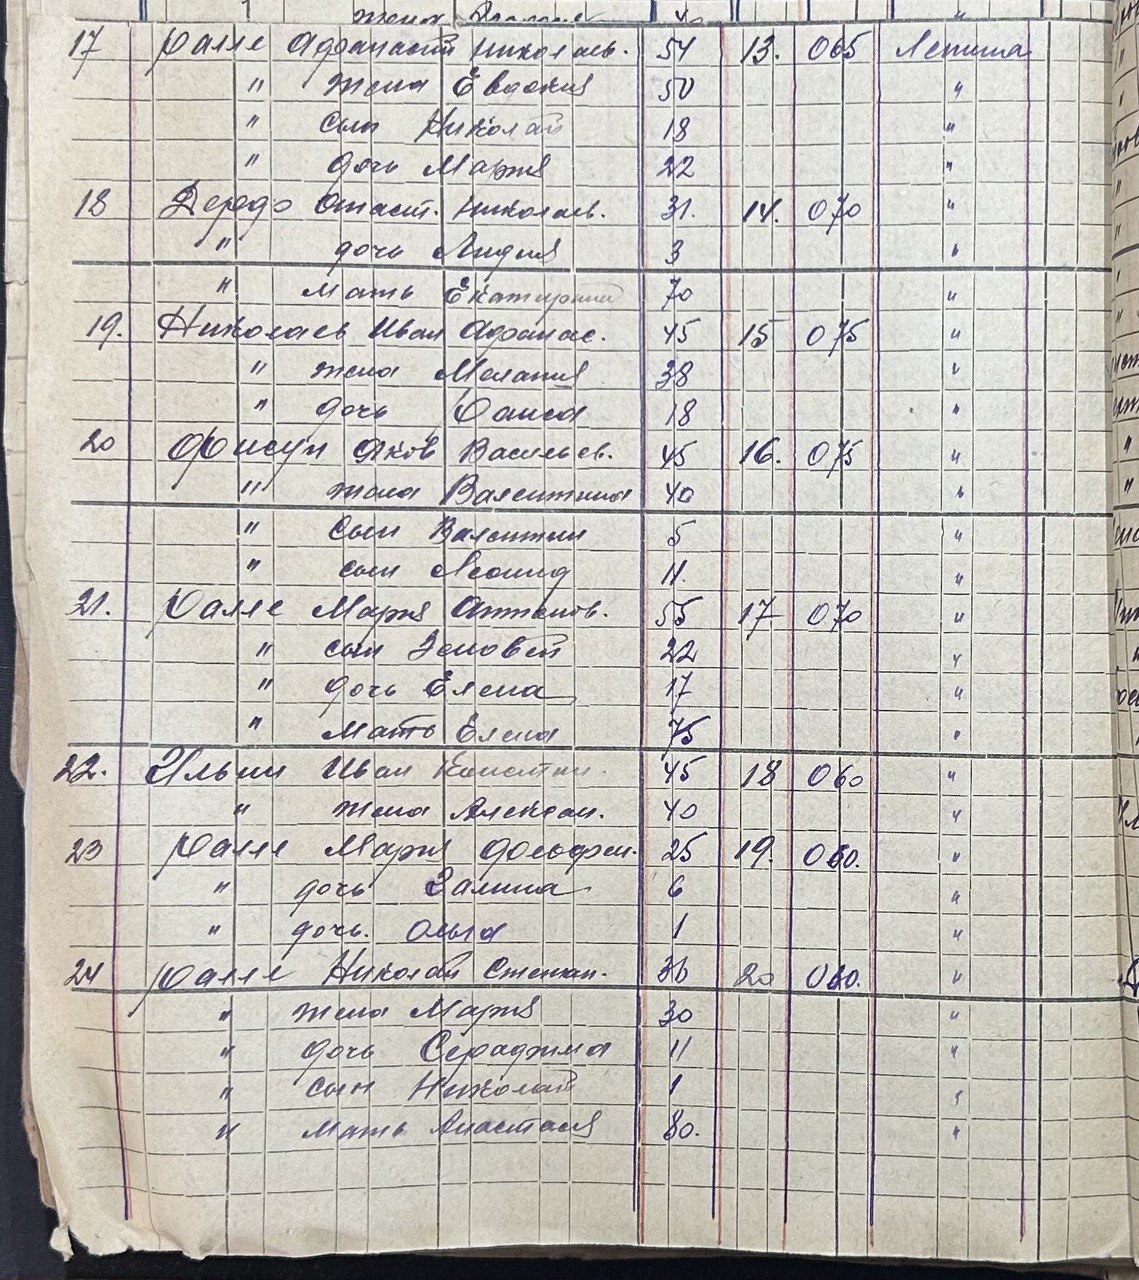 жена 40 "
17 Ралле Афанасий Николаев. 54 13. 065 Ленина
" жена Евдокия 50 "
" сын Николай 18 "
" дочь Мария 22 "
18 Дереда Анаст. Николаев. 31. 14. 070 "
" дочь Лидия 3 "
" мать Екатерина 70 "
19. Николаев Иван Афанас. 45 15 075 "
" жена Мелания 38 "
" дочь Раиса 18 "
20 Фисун Яков Васильев. 45 16. 075 "
" жена Валентина 40 "
" сын Валентин 5 "
" сын Леонид 11. "
21. Ралле Мария Антонов. 55 17 070 "
" сын Зеновей 22 "
" дочь Елена 17 "
" мать Елена 75 "
22. Ильин Иван Констан. 45 18 060 "
" жена Алексан. 40 "
23 Ралле Мария 25 19. 060. "
" дочь Галина 6 "
" дочь. Ольга 1 "
24 Ралле Николай Степан. 36 20 060. "
" жена Мария 30 "
" дочь Серафима 11 "
" сын Николай 1 "
" мать Анастасия 80. "